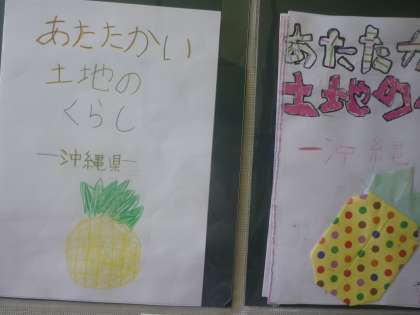 あたたかい
土地の
くらし
―沖縄県―
あたたか
土地の
―沖縄